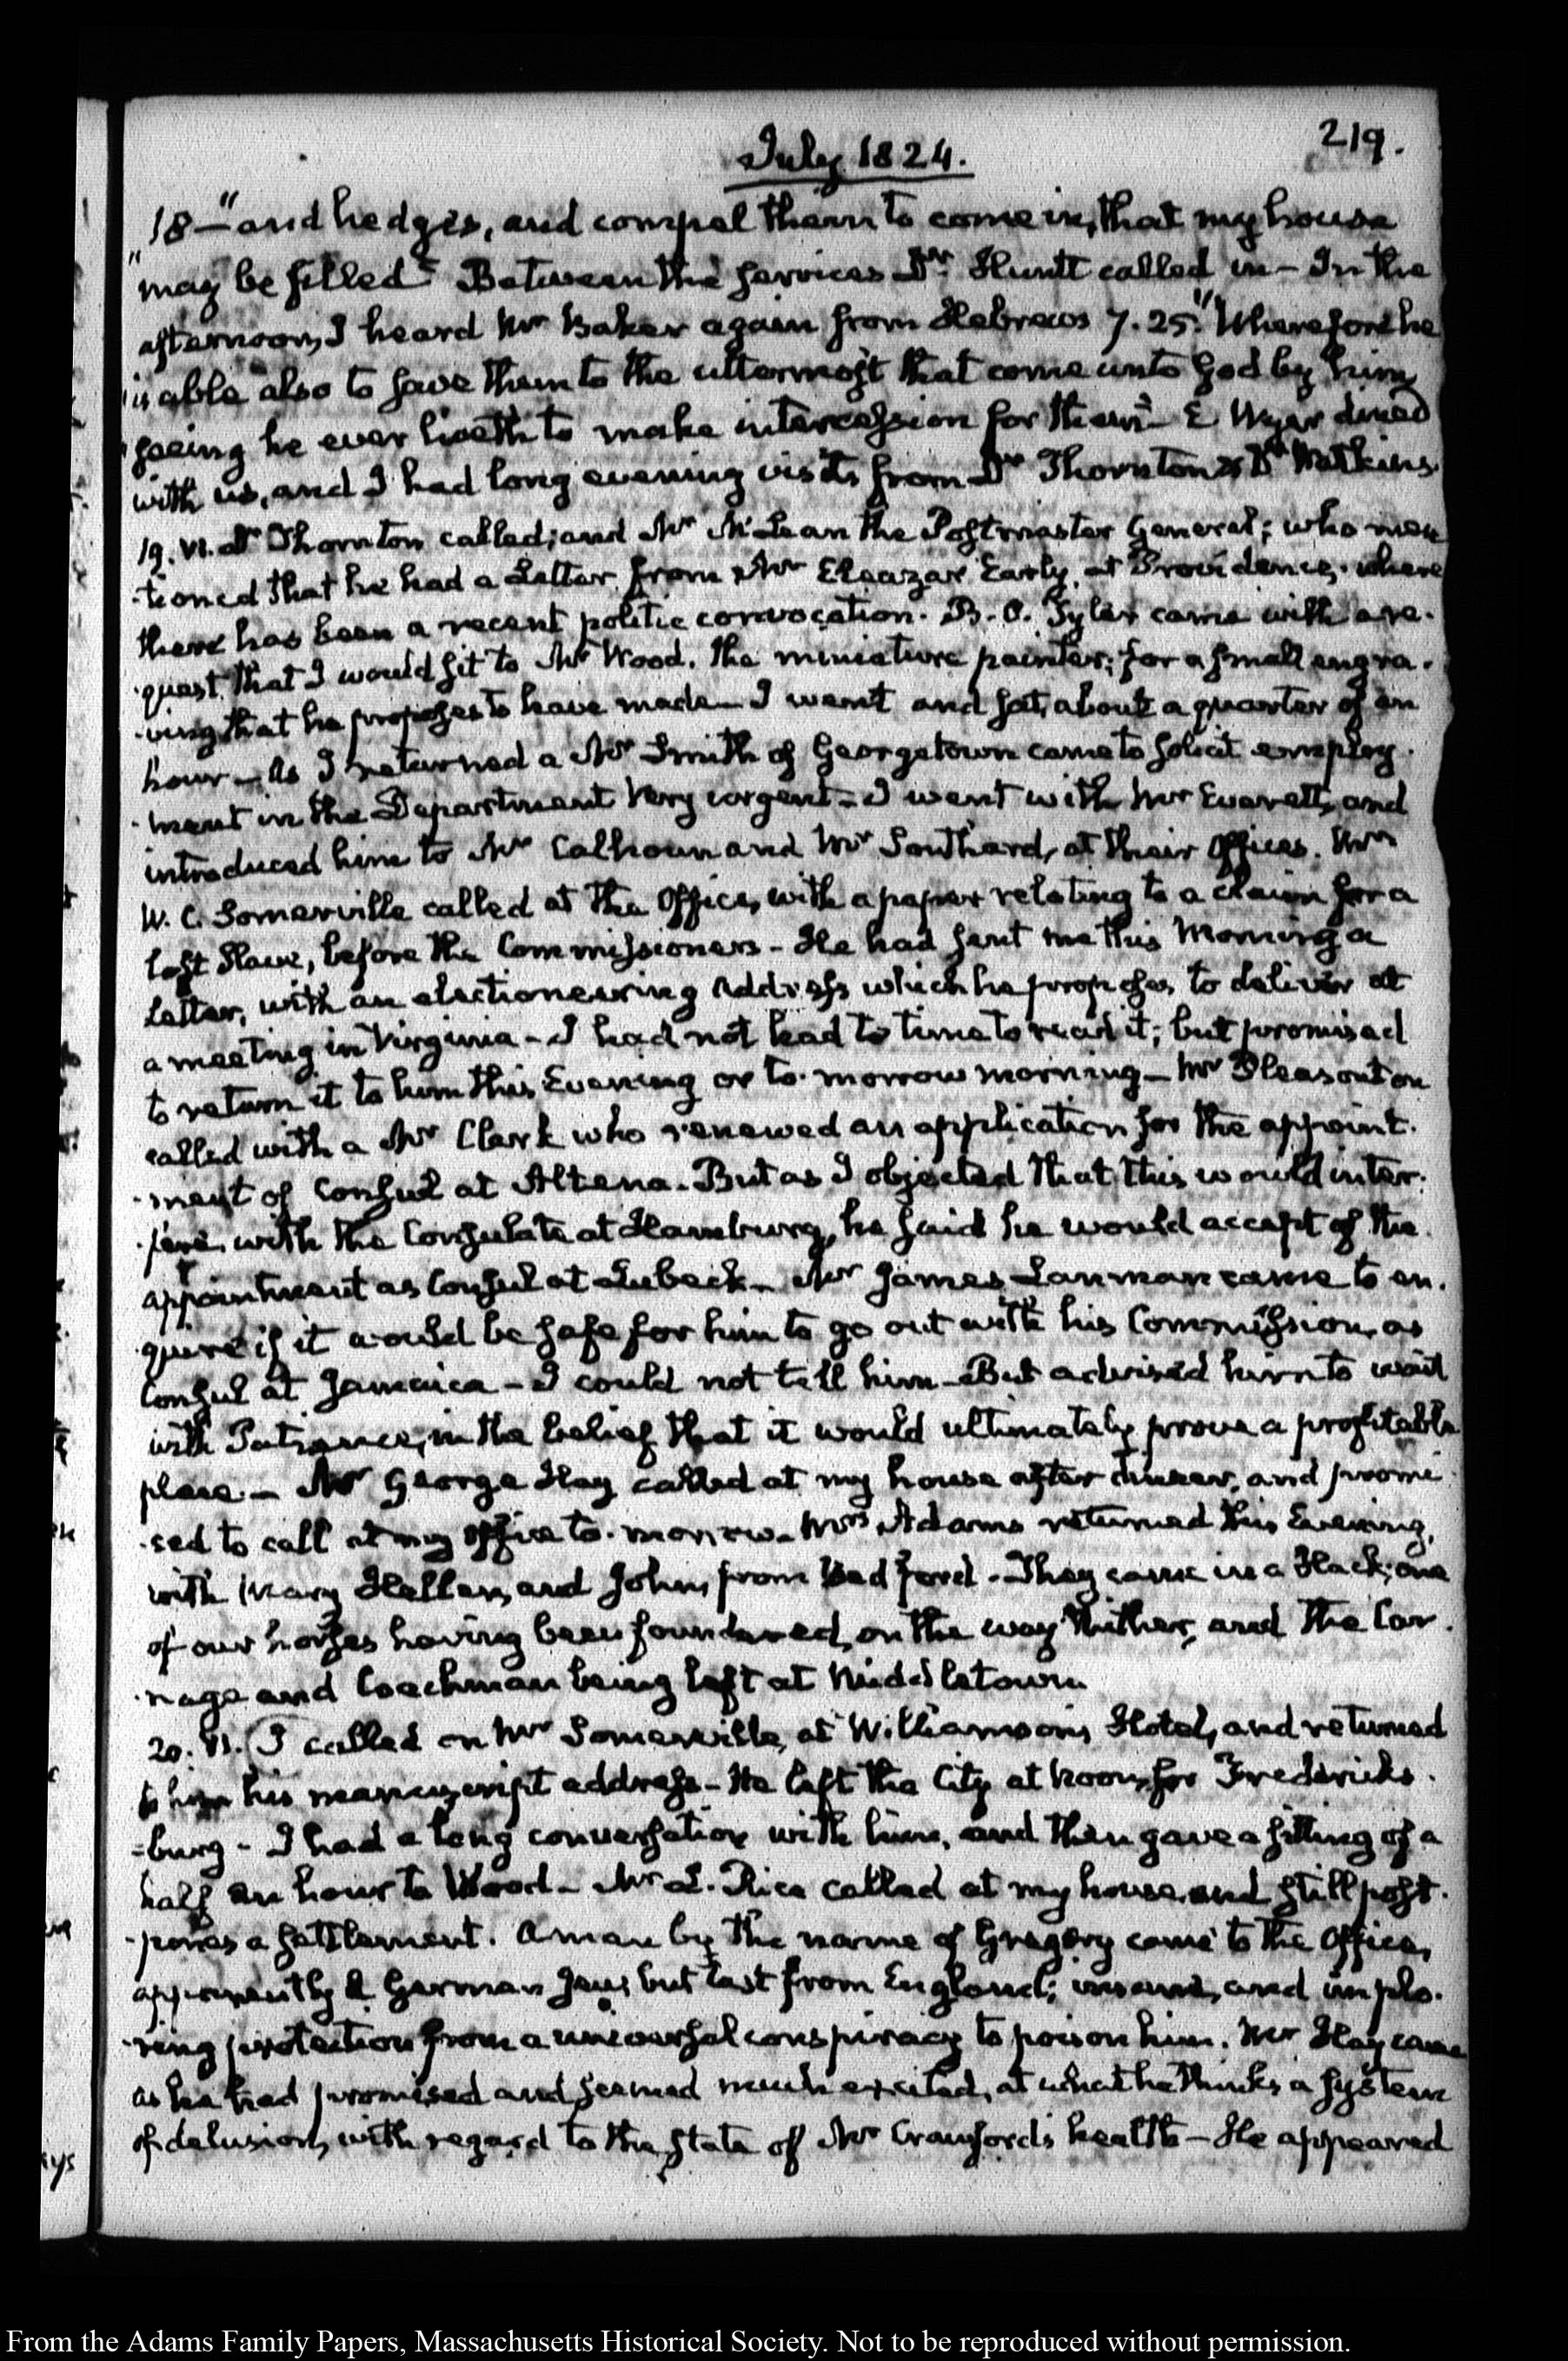 219.
July 1824.
18 — "and hedges, and compel them to come in, that my house
"may be filled" Between the services Dr. Huntt called in — In the
afternoon, I heard Mr Baker again from Hebrews 7. 25. "Wherefore he
"is able also to save them to the uttermost that come unto God by him,
"seeing he ever liveth to make intercession for them" — E Wyer dined
with us, and I had long evening visits from Dr Thornton & Dr Watkins.
19. VI. Dr Thornton called; and Mr McLean the Postmaster General; who men
-tioned that he had a Letter from Mr Eleazar Early, at Providence, where
there has been a recent politic convocation. B. O. Tyler came with a re-
-quest that I would sit to Mr Wood, the miniature painter; for a small engra-
-ving that he proposes to have made — I went and sat, about a quarter of an
hour — As I returned a Mr Smith of Georgetown came to solicit employ-
-ment in the Department very urgent — I went with Mr Everett, and
introduced him to Mr Calhoun and Mr Southard, at their Offices. Mr
W. C. Somerville called at the Office, with a paper relating to a claim for a
lost Slave, before the Commissioners — He had sent me this Morning a
Letter, with an electioneering Address which he proposes to deliver at
a meeting in Virginia — I had not had to time to read it; but promised
to return it to him this Evening or to-morrow morning — Mr Pleasonton
called with a Mr Clark who renewed an application for the appoint-
-ment of Consul at Altena. But as I objected that this would inter-
-fere with the Consulate at Hamburg, he said he would accept of the
appointment as Consul at Lubeck — Mr James Lanman came to en-
-quire if it would be safe for him to go out with his Commission, as
Consul at Jamaica — I could not tell him — But advised him to wait
with Patience, in the belief that it would ultimately prove a profitable
place — Mr George Hay called at my house after dinner, and promi-
-sed to call at my Office to-morrow. Mrs Adams returned this Evening,
with Mary Hellen, and John, from Bedford. They came in a Hack; one
of our horses having been foundered, on the way thither, and the Car-
-riage and Coachman being left at Middletown.
20. VI. I called on Mr Somerville, at Williamson's Hotel, and returned
to him his manuscript address — He left the City at Noon, for Fredericks-
-burg — I had a long conversation with him, and then gave a sitting of a
half an hour to Wood — Mr L. Rice called at my house, and still post-
-pones a settlement. A man by the name of Gregory came to the Office,
apparently a German Jew, but last from England; insane, and implo-
-ring protection from a universal conspiracy to poison him. Mr Hay came
as he had promised and seemed much excited, at what he thinks a system
of delusion, with regard to the state of Mr Crawford's health — He appeared
From the Adams Family Papers, Massachusetts Historical Society. Not to be reproduced without permission.